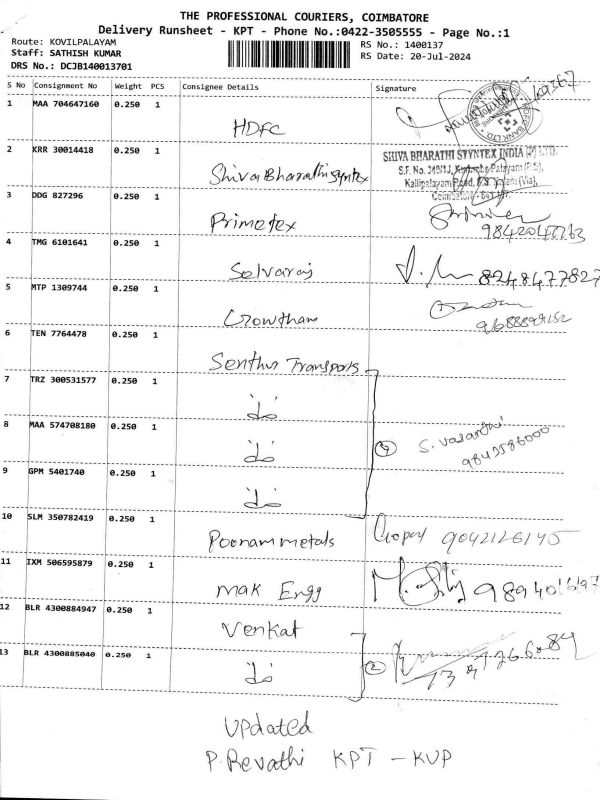 THE PROFESSIONAL COURIERS, COIMBATORE
Delivery Runsheet - KPT - Phone No.:0422-3505555 - Page No.:1
Route: KOVILPALAYAM
Staff: SATHISH KUMAR
DRS No.: DCJB140013701
RS No.: 1400137
RS Date: 20-Jul-2024
S No Consignment No Weight PCS Consignee Details Signature
1 MAA 704647160 0.250 1 HDFC
2 KRR 30014418 0.250 1 Shiva Bharathi Syntex
SHIVA BHARATHI SYNTEX INDIA (P) LTD.
Kallipalayam Road,
Coimbatore
3 DDG 827296 0.250 1 Primetex
4 TMG 6101641 0.250 1 Selvaraj 8248477827
5 MTP 1309744 0.250 1 Gowtham
6 TEN 7764478 0.250 1 Senthur Transports
7 TRZ 300531577 0.250 1
8 MAA 574708180 0.250 1 4 S. Vasanthi
9842586000
9 GPM 5401740 0.250 1
10 SLM 350782419 0.250 1 Poonam metals Gopal 9042126145
11 IXM 506595879 0.250 1 Mak Engg
12 BLR 4300884947 0.250 1 Venkat
13 BLR 4300885040 0.250 1 2
Updated
P. Revathi KPT - KVP